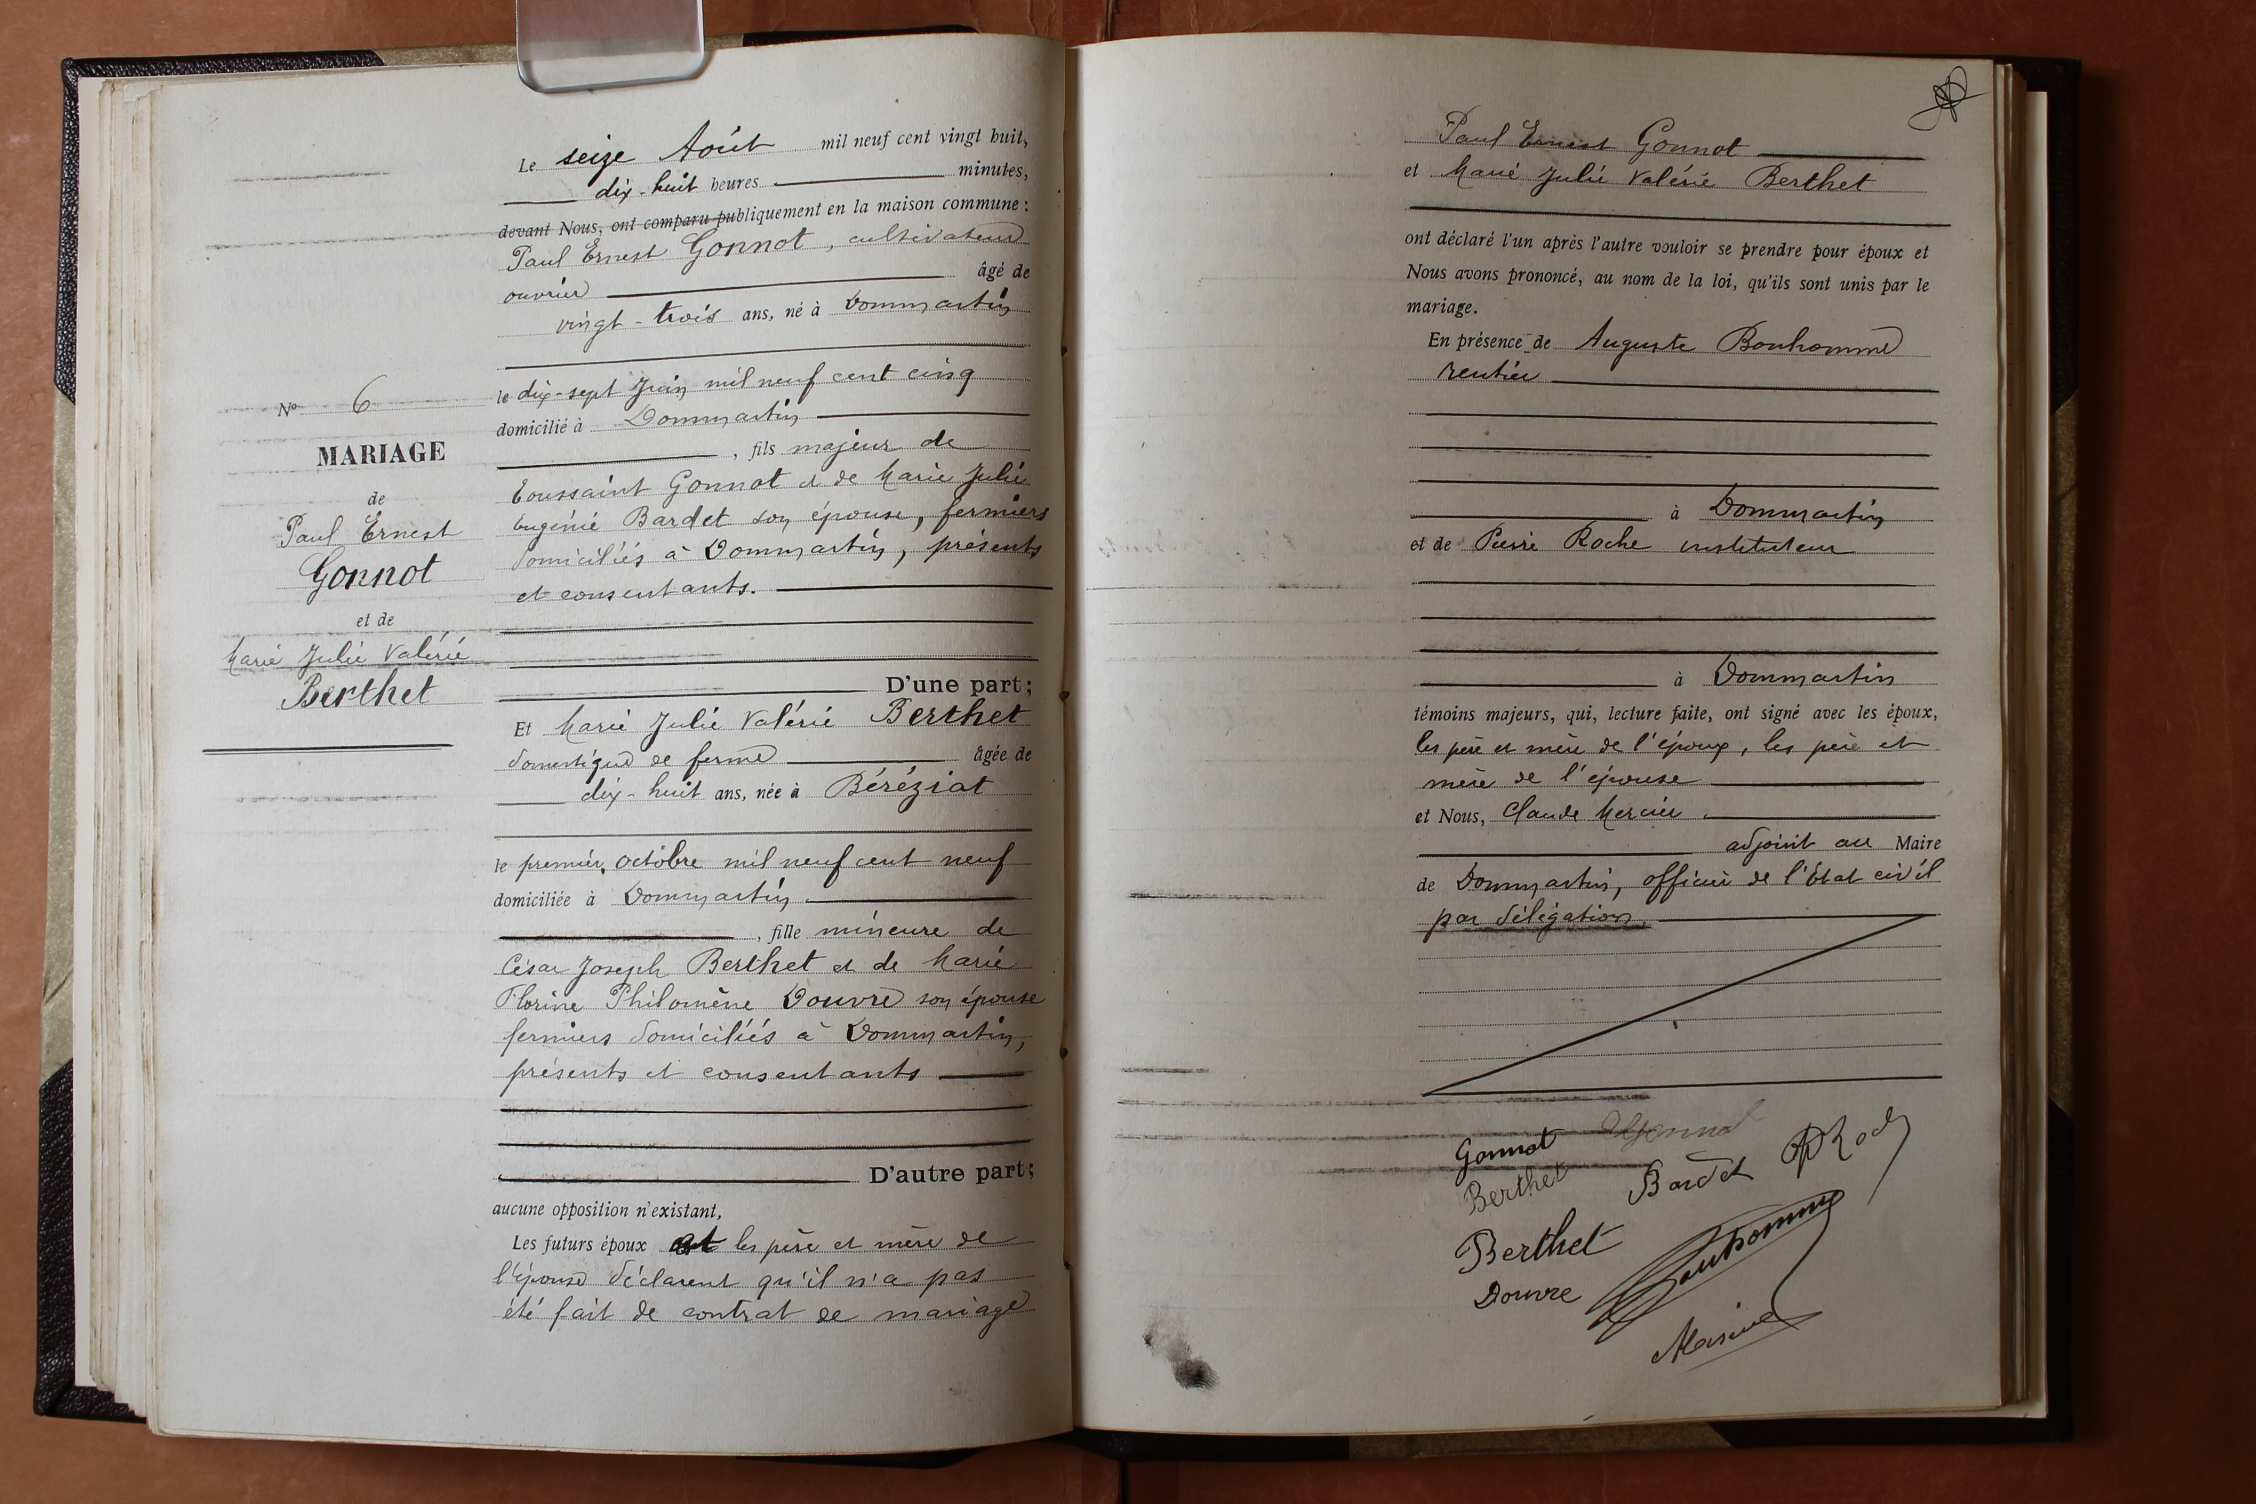 Le seize Août mil neuf cent vingt huit,
dix-huit heures minutes,
devant Nous, ont comparu publiquement en la maison commune :
Paul Ernest Gonnot, cultivateur
ouvrier âgé de
vingt-trois ans, né à Dommartin
le dix-sept Juin mil neuf cent cinq
domicilié à Dommartin
, fils majeur de
Toussaint Gonnot et de Marie Julie
Eugénie Bardet son épouse, fermiers
domiciliés à Dommartin, présents
et consentants.
D'une part ;
Et Marie Julie Valérie Berthet
domestique de ferme âgée de
dix-huit ans, née à Béréziat
le premier octobre mil neuf cent neuf
domiciliée à Dommartin
, fille mineure de
César Joseph Berthet et de Marie
Florine Philomène Douvre son épouse
fermiers domiciliés à Dommartin,
présents et consentants
D'autre part ;
aucune opposition n'existant,
Les futurs époux et les père et mère de
l'épouse déclarent qu'il n'a pas
été fait de contrat de mariage
N° 6
MARIAGE
de
Paul Ernest
Gonnot
et de
Marie Julie Valérie
Berthet
Paul Ernest Gonnot
et Marie Julie Valérie Berthet
ont déclaré l'un après l'autre vouloir se prendre pour époux et
Nous avons prononcé, au nom de la loi, qu'ils sont unis par le
mariage.
En présence de Auguste Bonhomme
rentier
à Dommartin
et de Pierre Roche instituteur
à Dommartin
témoins majeurs, qui, lecture faite, ont signé avec les époux,
les père et mère de l'époux, les père et
mère de l'épouse
et Nous, Claude Mercier
adjoint au Maire
de Dommartin, officier de l'Etat civil
par délégation.
Gonnot Gonnot
Berthet Bardet Roche
Berthet Bonhomme
Douvre
Mercier